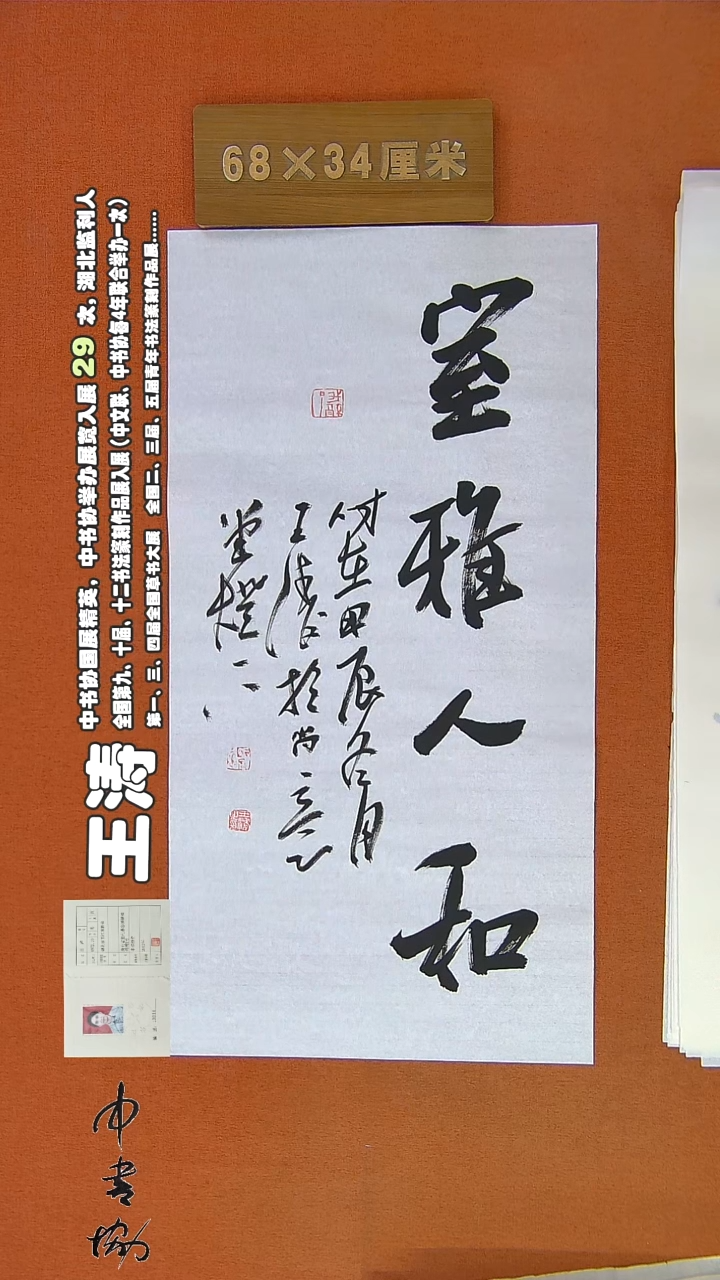 68×34厘米
室雅人和
时在甲辰冬月
王涛于尚意
堂灯下
中书协国展精英，中书协举办展览入展 29 次，湖北监利人
全国第九、十届、十二书法篆刻作品展入展（中文联、中书协每4年联合举办一次）
第一、三、四届全国草书大展　全国二、三届、五届青年书法篆刻作品展......
王涛
中书协